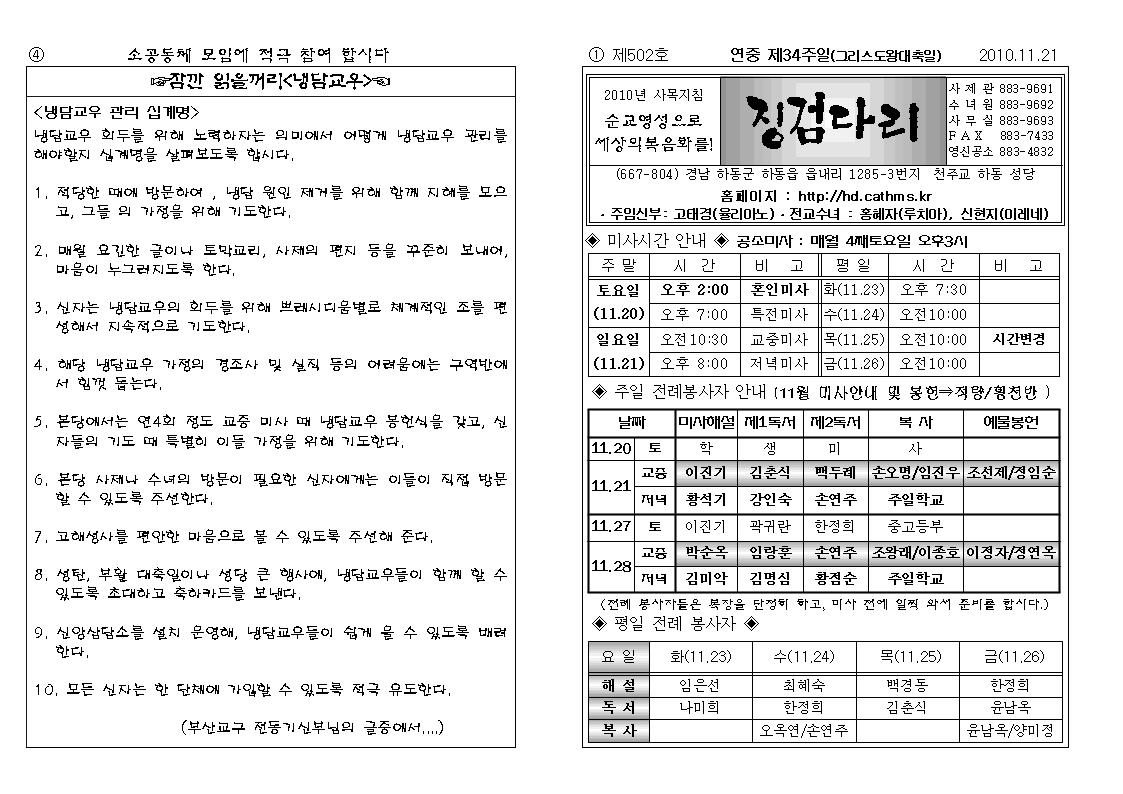 ④ 소공동체 모임에 적극 참여 합시다
☞잠깐 읽을꺼리<냉담교우>☜
<냉담교우 관리 십계명>
냉담교우 회두를 위해 노력하자는 의미에서 어떻게 냉담교우 관리를
해야할지 십계명을 살펴보도록 합시다.
1. 적당한 때에 방문하여 , 냉담 원인 제거를 위해 함께 지혜를 모으
고, 그들 의 가정을 위해 기도한다.
2. 매월 요긴한 글이나 토막교리, 사제의 편지 등을 꾸준히 보내어,
마음이 누그러지도록 한다.
3. 신자는 냉담교우의 회두를 위해 쁘레시디움별로 체계적인 조를 편
성해서 지속적으로 기도한다.
4. 해당 냉담교우 가정의 경조사 및 실직 등의 어려움에는 구역반에
서 힘껏 돕는다.
5. 본당에서는 연4회 정도 교중 미사 때 냉담교우 봉헌식을 갖고, 신
자들의 기도 때 특별히 이들 가정을 위해 기도한다.
6. 본당 사제나 수녀의 방문이 필요한 신자에게는 이들이 직접 방문
할 수 있도록 주선한다.
7. 고해성사를 편안한 마음으로 볼 수 있도록 주선해 준다.
8. 성탄, 부활 대축일이나 성당 큰 행사에, 냉담교우들이 함께 할 수
있도록 초대하고 축하카드를 보낸다.
9. 신앙상담소를 설치 운영해, 냉담교우들이 쉽게 올 수 있도록 배려
한다.
10. 모든 신자는 한 단체에 가입할 수 있도록 적극 유도한다.
(부산교구 전동기신부님의 글중에서....)
① 제502호 연중 제34주일(그리스도왕대축일) 2010.11.21
2010년 사목지침
순교영성으로
세상의복음화를!
징검다리
사 제 관 883-9691
수 녀 원 883-9692
사 무 실 883-9693
F A X 883-7433
영신공소 883-4832
(667-804) 경남 하동군 하동읍 읍내리 1285-3번지 천주교 하동 성당
홈페이지 : http://hd.cathms.kr
· 주임신부: 고태경(율리아노) · 전교수녀 : 홍혜자(루치아), 신현지(이레네)
◈ 미사시간 안내 ◈ 공소미사 : 매월 4째토요일 오후3시
주 말 시 간 비 고 평 일 시 간 비 고
토요일 오후 2:00 혼인미사 화(11.23) 오후 7:30
(11.20) 오후 7:00 특전미사 수(11.24) 오전10:00
일요일 오전10:30 교중미사 목(11.25) 오전10:00 시간변경
(11.21) 오후 8:00 저녁미사 금(11.26) 오전10:00
◈ 주일 전례봉사자 안내 (11월 미사안내 및 봉헌⇒적량/횡천반 )
날짜 미사해설 제1독서 제2독서 복 사 예물봉헌
11.20 토 학 생 미 사
11.21 교중 이진기 김춘식 백두례 손오명/임진우 조선제/정임순
저녁 황석기 강인숙 손연주 주일학교
11.27 토 이진기 곽귀란 한정희 중고등부
11.28 교중 박순옥 임랑훈 손연주 조왕래/이종호 이정자/정연옥
저녁 김미악 김명심 황점순 주일학교
(전례 봉사자들은 복장을 단정히 하고, 미사 전에 일찍 와서 준비를 합시다.)
◈ 평일 전례 봉사자 ◈
요 일 화(11.23) 수(11.24) 목(11.25) 금(11.26)
해 설 임은선 최혜숙 백경동 한정희
독 서 나미희 한정희 김춘식 윤남옥
복 사 오옥연/손연주 윤남옥/양미정